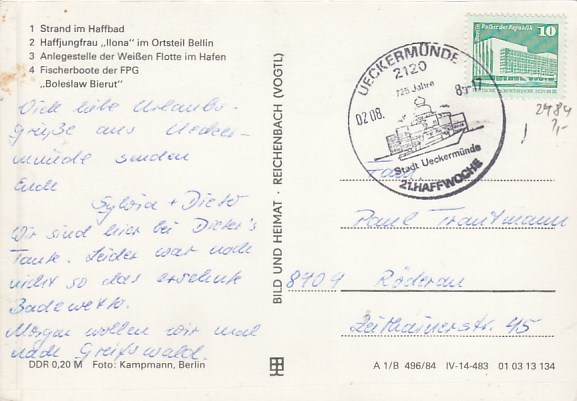 1 Strand im Haffbad
2 Haffjungfrau „Ilona" im Ortsteil Bellin
3 Anlegestelle der Weißen Flotte im Hafen
4 Fischerboote der FPG
„Boleslaw Bierut"
Viele liebe Urlaubs-
grüße aus Uecker-
münde senden
Euch
Sylvia + Dieter
Wir sind hier bei Dieter's
Tante. Leider war noch
nicht so das ersehnte
Badewetter.
Morgen wollen wir mal
nach Greifswald.
DDR 0,20 M Foto: Kampmann, Berlin
BILD UND HEIMAT · REICHENBACH (VOGTL)
Palast der Republik
10
DDR
UECKERMÜNDE 1
2120
725 Jahre
02.08. 85-17
Stadt Ueckermünde
21.HAFFWOCHE
2484
Fam.
Paul Trautmann
8404 Röderau
Zeithainerstr. 45
A 1/B 496/84 IV-14-483 01 03 13 134